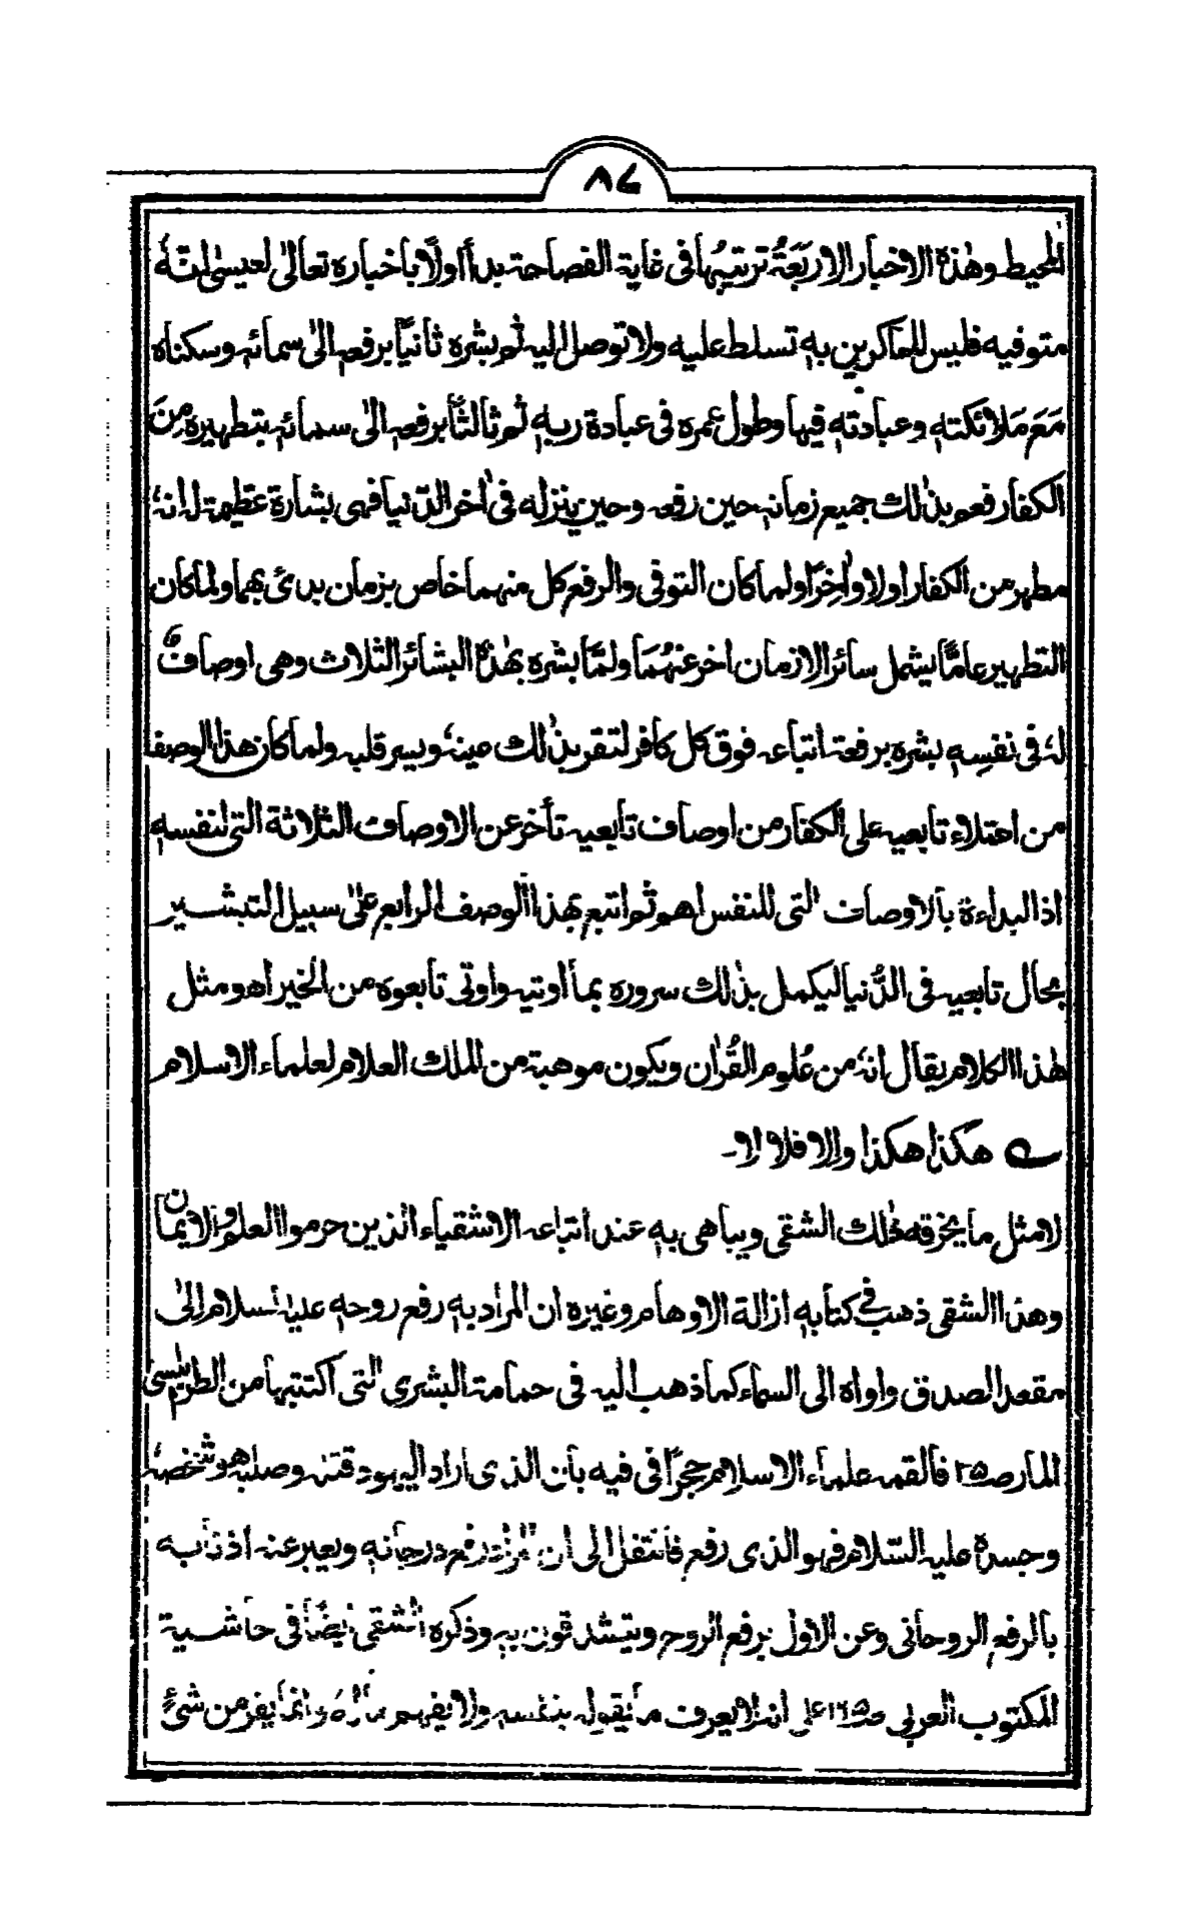 ٨٤
المحيط وهٰذه الاخبار الاربَعَةُ ترتيبُها فى غاية الفصاحة بدأ اولًا باخباره تعالىٰ لعيسىٰ انّهٗ
متوفيه فليس للماكرين بهٖ تسلط عليه ولا توصل اليه ثم بشره ثانيًا برفعهٖ الىٰ سمائهٖ وسكناه
مَعَ مَلائكتهٖ وعبادتهٖ فيها وطول عمره فى عبادة ربهٖ ثم ثالثًا برفعهٖ الىٰ سمائهٖ بتطهيره مِنَ
الكفار فعم بذٰلك جميع زمانهٖ حين رفعه وحين ينزله فى اٰخر الدّنيا فهى بشارة عظيمة له انهٗ
مطهر من الكفار اولا واٰخِرًا ولما كان التوفى والرفع كل منهما خاص بزمان بدئ بهما ولما كان
التطهير عامًّا يشمل سائر الازمان اخر عنهُمَا ولمّا بشره بهٰذه البشائر الثلاث وهى اوصافٌ
لهٗ فى نفسِهٖ بشره برفعة اتباعه فوق كل كافر لتقر بذٰلك عينهٗ ويسر قلبه ولما كان هذا الوصف
من اعتلاء تابعيه على الكفار من اوصاف تابعيه تأخر عن الاوصاف الثلاثة التى لنفسهٖ
اذ البداءة بالاوصاف التى للنفس اهم ثم اتبع بهذا الوصف الرابع علىٰ سبيل التبشير
بحال تابعيه فى الدُّنيا ليكمل بذٰلك سروره بما اوتيه واوتى تابعوه من الخير اهـ ومثل
هٰذا الكلام يقال انهٗ من عُلوم القُراٰن ويكون موهبة من الملك العلام لعلماء الاسلام
؎ هكذا هكذا والا فلا لا۔
لا مثل ما يخزقه ذٰلك الشقى ويباهى بهٖ عند اتباعه الاشقياء الذين حرموا العلم والايمان
وهذا الشقى ذهب فى كتابهٖ ازالة الاوهام وغيره ان المراد بهٖ رفع روحهٖ عليه السلام الىٰ
مقعد الصدق واواه الى السماء كما ذهب اليه فى حمامة البشرى التى اكتتبها من الطرابلسى
المار ص٢٥ فالقمه علماء الاسلام حجرًا فى فيه بان الذى اراد اليهود قتله وصلبه هو شخصهٗ
وجسده عليه السّلام فهو الذى رفع فانتقل الى ان المراد رفع درجاتهٖ ويعبر عنه اذنابه
بالرفع الروحانى وعن الاول برفع الروح ويتشدقون به وذكره الشقى ايضًا فى حاشية
المكتوب العربى ص١٦٥ على انه لا يعرف ما يقوله بنفسه ولا يفهم وانما يفر من شئٍ